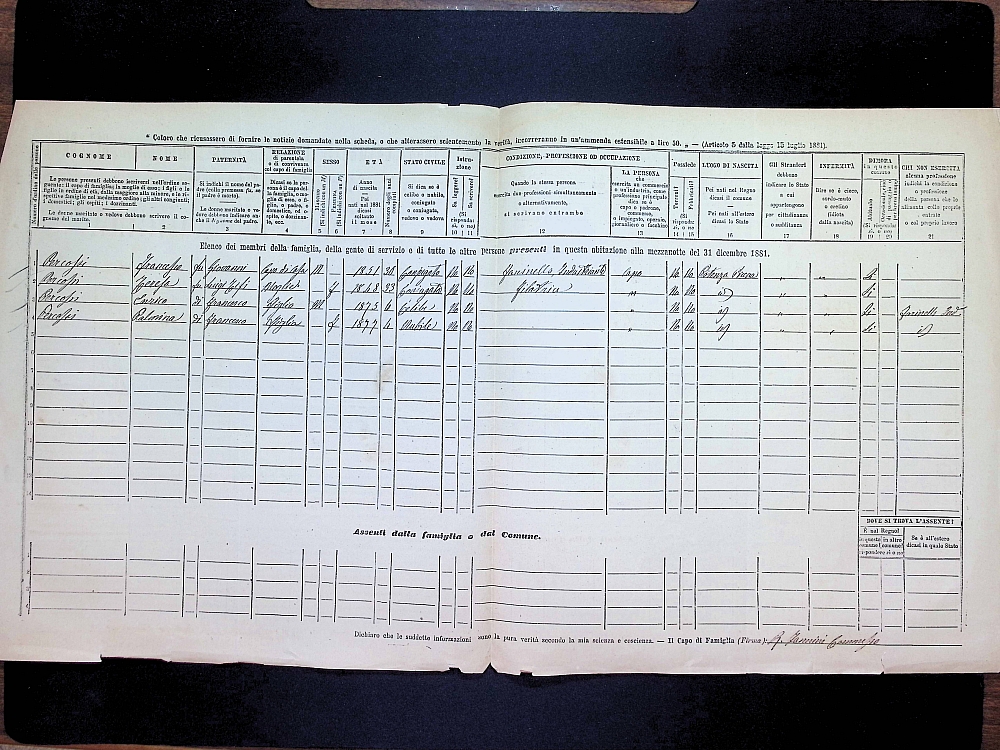 * Coloro che ricusassero di fornire le notizie domandate nella scheda, o che alterassero scientemente la verità, incorreranno in un'ammenda estensibile a lire 50. „ — (Articolo 5 della legge 15 luglio 1881).
COGNOME NOME PATERNITÀ RELAZIONE di parentela o di convivenza col capo di famiglia SESSO ETÀ STATO CIVILE Istruzione CONDIZIONE, PROFESSIONE OD OCCUPAZIONE Possiede LUOGO DI NASCITA Gli Stranieri INFERMITÀ DIMORA in questo comune CHI NON ESERCITA
Le persone presenti debbono iscriversi nell'ordine seguente: il capo di famiglia; la moglie di esso; i figli e le figlie in ordine di età, dalla maggiore alla minore, e le rispettive famiglie nel medesimo ordine; gli altri congiunti; i domestici; gli ospiti; i dozzinanti.
Le donne maritate o vedove debbono scrivere il cognome del marito.
Si indichi il nome del padre (colla premessa fu, se il padre è morto).
Le donne maritate o vedove debbono indicare anche il Cognome del padre.
Anno di nascita
Pei nati nel 1881 dicasi soltanto il mese
Numero degli anni compiuti
Si dica se è celibe o nubile, coniugato o coniugata, vedovo o vedova
Sa leggere?
Sa scrivere?
(Si risponda: sì, o no)
Quando la stessa persona esercita due professioni simultaneamente o alternativamente, si scrivano entrambe
LA PERSONA che esercita un commercio o un'industria, come professione principale dica se è capo o padrone, commesso, o impiegato, operaio, giornaliero o facchino
Pei nati nel Regno dicasi il comune
Pei nati all'estero dicasi lo Stato
debbono indicare lo Stato a cui appartengono per cittadinanza o sudditanza
Dire se è cieco, sordo-muto o cretino (idiota dalla nascita)
1 2 3 4 5 6 7 8 9 10 11 12 13 14 15 16 17 18 19 20 21
Elenco dei membri della famiglia, della gente di servizio e di tutte le altre persone presenti in questa abitazione alla mezzanotte del 31 dicembre 1881.
Percossi Francesco fu Giovanni Capo di casa M 1851 30 Coniugato No No Capo No No Potenza Picena
Percossi Teresa f 1848 33 Coniugata No No Filatrice „ No No id „ „ Si
Percossi di Francesco Figlio M 1875 6 Celibe No No „ No No id Si
Percossi Palmina di Francesco Figlia f 1877 4 Nubile No No „ No No id „ „ Si id
Assenti dalla famiglia o dal Comune.
DOVE SI TROVA L'ASSENTE?
È nel Regno?
in questo comune
in altro comune
Se è all'estero dicasi in quale Stato
Dichiaro che le suddette informazioni sono la pura verità secondo la mia scienza e coscienza. — Il Capo di Famiglia (Firma):